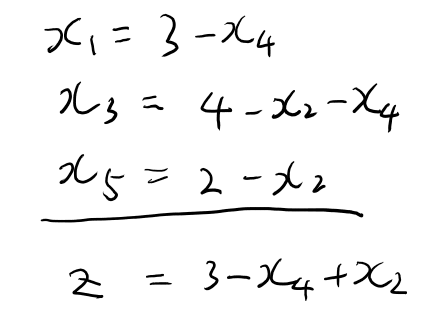 x₁ = 3 - x₄
x₃ = 4 - x₂ - x₄
x₅ = 2 - x₂
z = 3 - x₄ + x₂